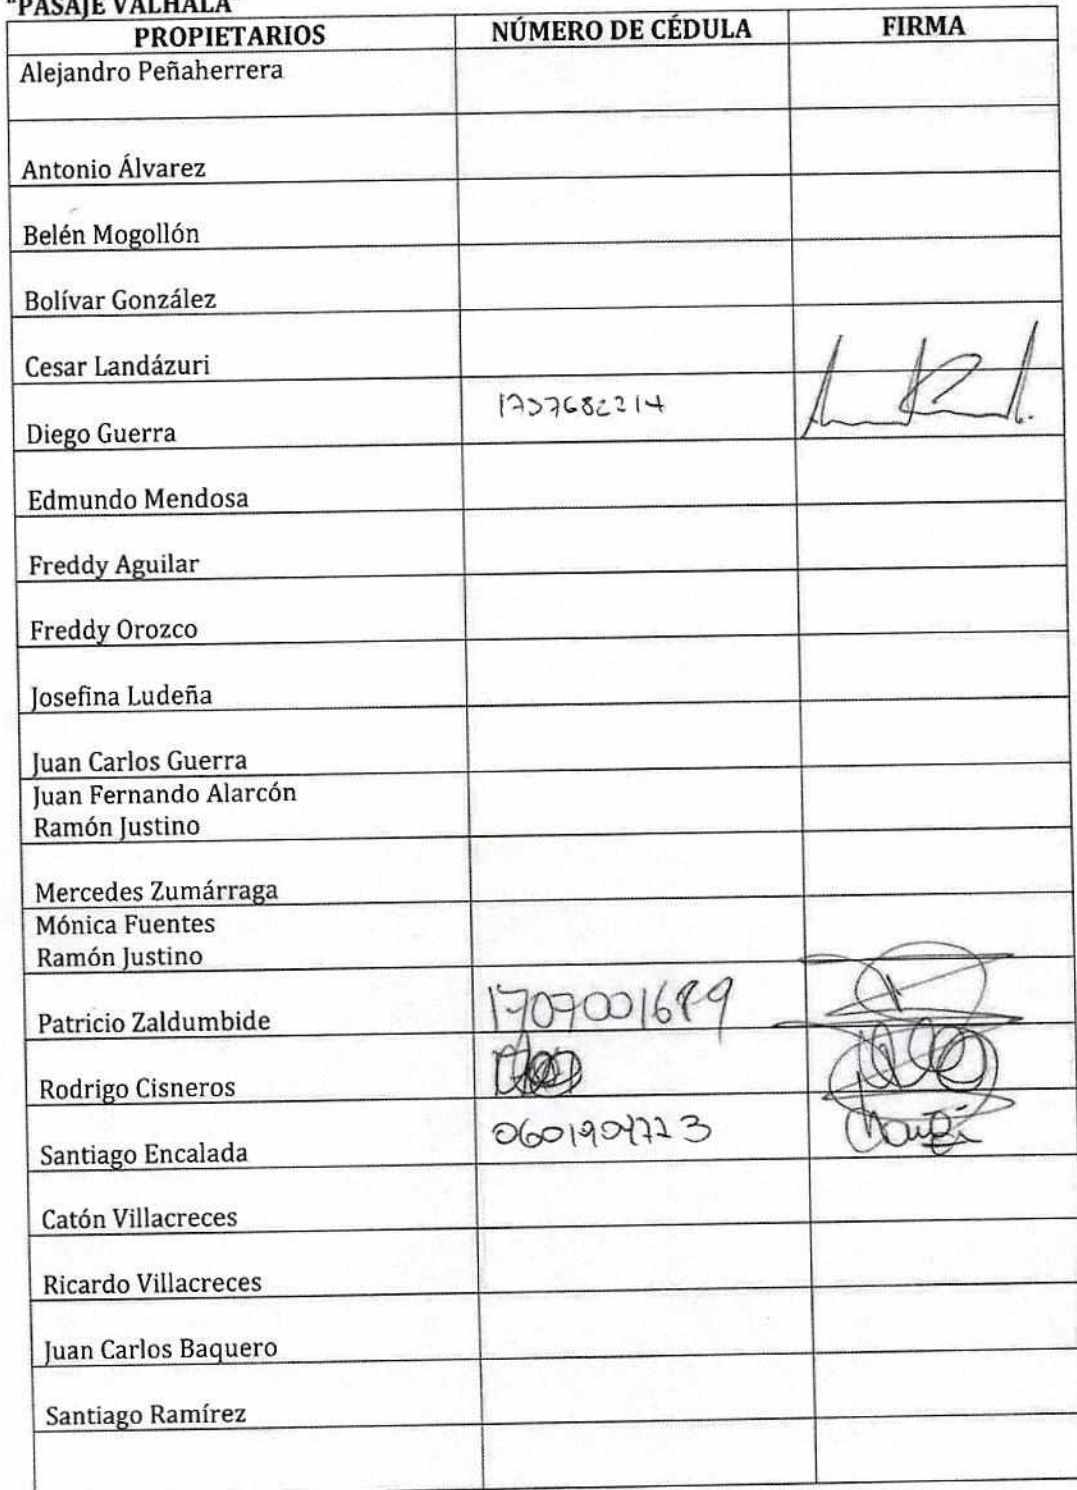 "PASAJE VALHALA"
PROPIETARIOS NÚMERO DE CÉDULA FIRMA
Alejandro Peñaherrera
Antonio Álvarez
Belén Mogollón
Bolívar González
Cesar Landázuri
Diego Guerra
Edmundo Mendosa
Freddy Aguilar
Freddy Orozco
Josefina Ludeña
Juan Carlos Guerra
Juan Fernando Alarcón
Ramón Justino
Mercedes Zumárraga
Mónica Fuentes
Ramón Justino
Patricio Zaldumbide 1707001689
Rodrigo Cisneros
Santiago Encalada
Catón Villacreces
Ricardo Villacreces
Juan Carlos Baquero
Santiago Ramírez